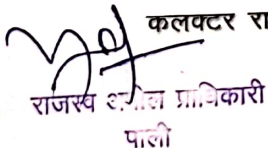 कलक्टर रा
राजस्व अपील प्राधिकारी
पाली